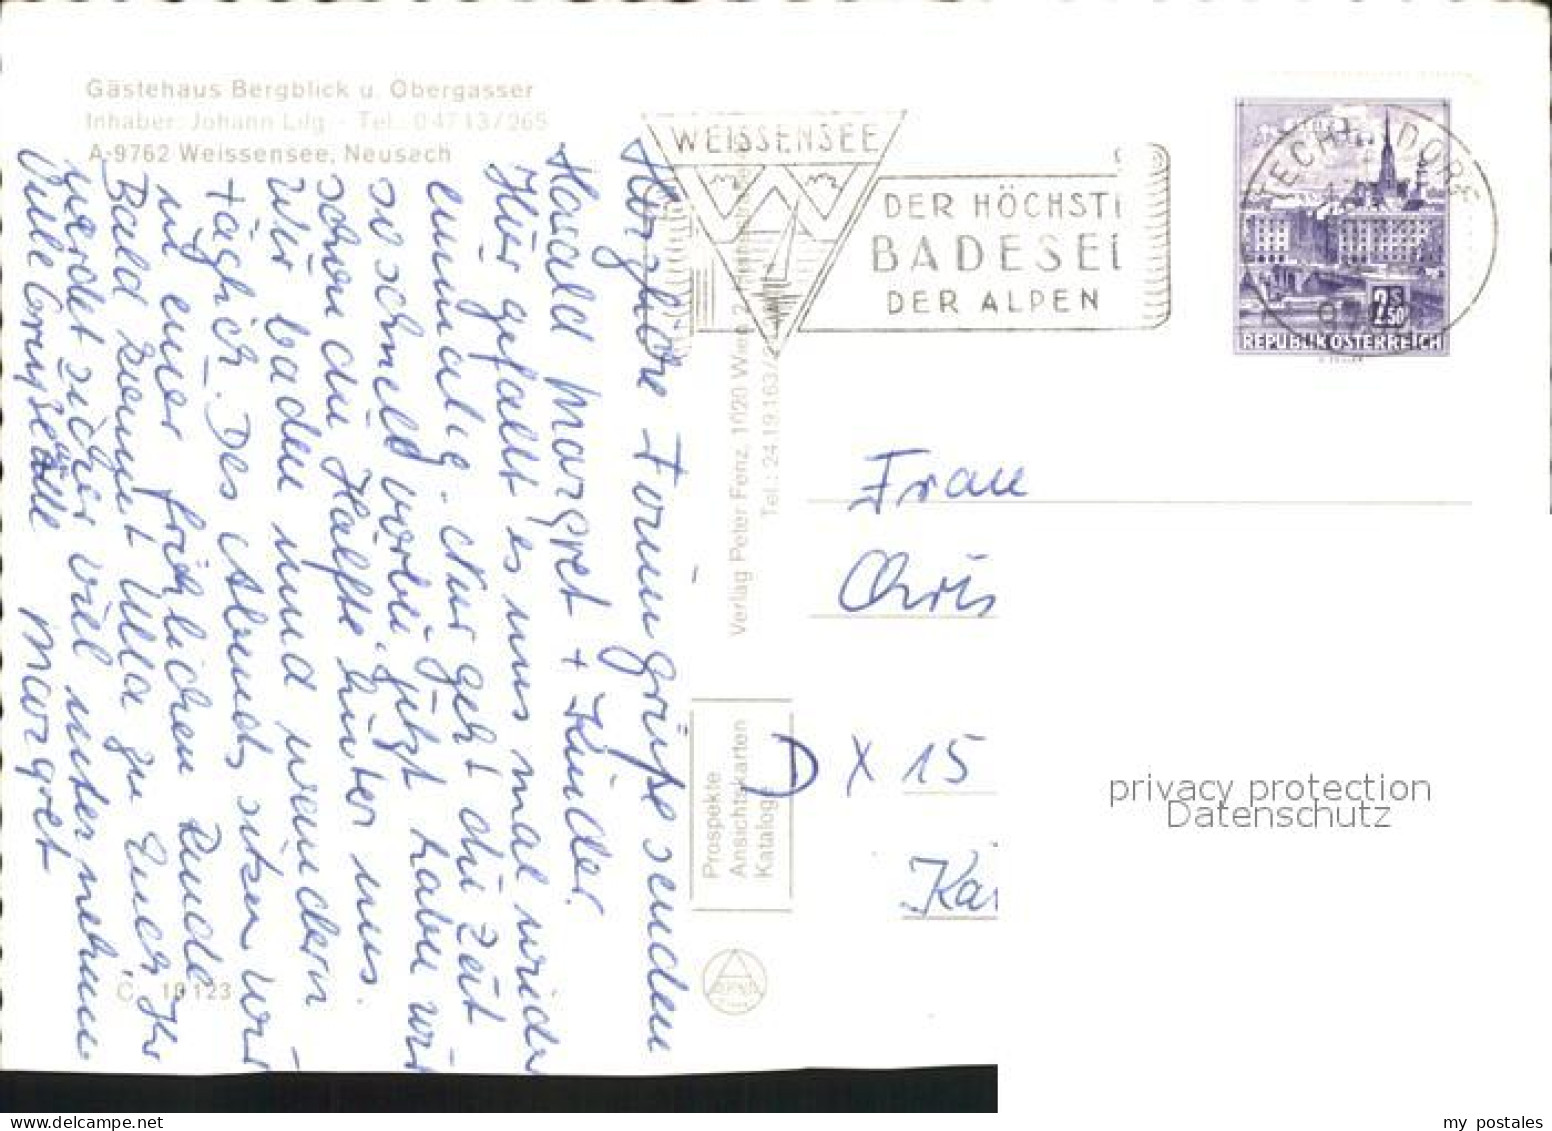 Gästehaus Bergblick u. Obergasser
Inhaber: Johann Lilg - Tel.: 04713/265
A-9762 Weissensee, Neusach
WEISSENSEE
DER HÖCHSTE
BADESEE
DER ALPEN
TECHENDORF
2S50
REPUBLIK ÖSTERREICH
Herzliche Feriengrüße senden
Harald Margret + Kinder.
Hier gefällt es uns mal wieder
einmalig. Nur geht die Zeit
so schnell vorbei, jetzt haben wir
schon die Hälfte hinter uns.
Wir baden und wandern
täglich. Des Abends sitzen wir
in einer fröhlichen Runde.
Bald kommt Ulla zu Euch. Ihr
werdet sicher viel unternehmen
Viele Grüße an alle Margret
Verlag Peter Fenz, 1020 Wien 2
Tel.: 24.19.163/2
Prospekte
Ansichtskarten
Kataloge
C 10123
Frau
Chris
D X 15
Kar
privacy protection
Datenschutz
my postales